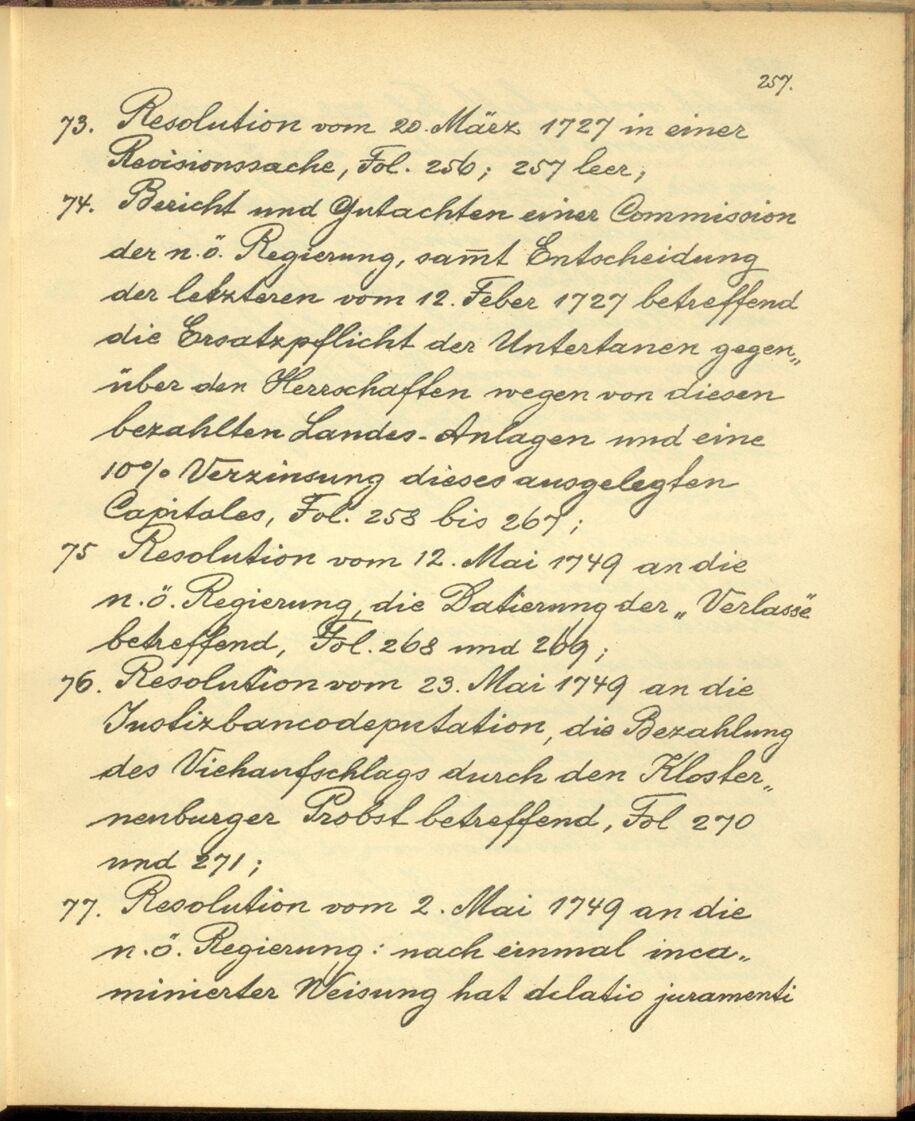 257.
73. Resolution vom 20. März 1727 in einer
Revisionssache, Fol. 256; 257 leer;
74. Bericht und Gutachten einer Commission
der n.ö. Regierung, sam̅t Entscheidung
der letzteren vom 12. Feber 1727 betreffend
die Ersatzpflicht der Untertanen gegen„
über den Herrschaften wegen von diesen
bezahlten Landes-Anlagen und eine
10% Verzinsung dieses ausgelegten
Capitales, Fol. 258 bis 267;
75 Resolution vom 12. Mai 1749 an die
n.ö. Regierung, die Datierung der „Verlässe"
betreffend, Fol. 268 und 269;
76. Resolution vom 23. Mai 1749 an die
Justizbancodeputation, die Bezahlung
des Viehaufschlags durch den Kloster„
neuburger Probst betreffend, Fol 270
und 271;
77. Resolution vom 2. Mai 1749 an die
n.ö. Regierung: nach einmal inca„
minierter Weisung hat dilatio juramenti